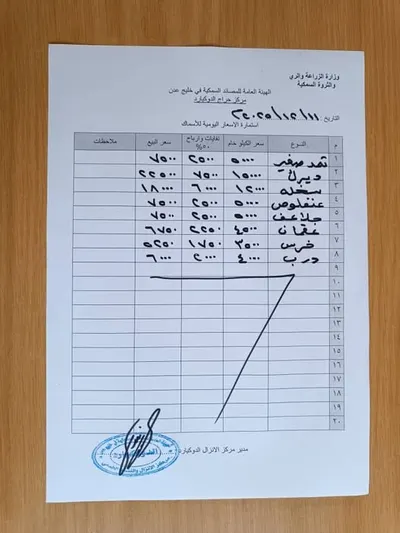 وزارة الزراعة والري
والثروة السمكية
الهيئة العامة للمصائد السمكية في خليج عدن
مركز حراج الدوكيارد
التاريخ ١١/١٢/٢٠٢٥م
استمارة الاسعار اليومية للأسماك
م النوع سعر الكيلو خام نفايات وارباح ٥٠% سعر البيع ملاحظات
١ ثمد صغير ٥٠٠٠ ٢٥٠٠ ٧٥٠٠
٢ ديرك ١٥٠٠٠ ٧٥٠٠ ٢٢٥٠٠
٣ سخله ١٢٠٠٠ ٦٠٠٠ ١٨٠٠٠
٤ عنفلوص ٥٠٠٠ ٢٥٠٠ ٧٥٠٠
٥ جلاعف ٥٠٠٠ ٢٥٠٠ ٧٥٠٠
٦ عقمان ٤٥٠٠ ٢٢٥٠ ٦٧٥٠
٧ خرس ٣٥٠٠ ١٧٥٠ ٥٢٥٠
٨ درب ٤٠٠٠ ٢٠٠٠ ٦٠٠٠
٩
١٠
١١
١٢
١٣
١٤
١٥
١٦
١٧
١٨
١٩
٢٠
مدير مركز الانزال الدوكيارد